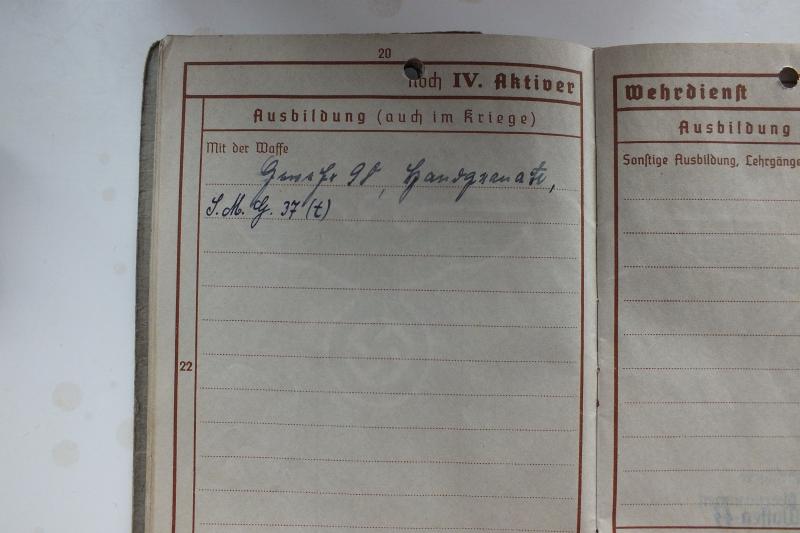 20
noch IV. Aktiver
Ausbildung (auch im Kriege)
Mit der Waffe
Gewehr 98, Handgranate,
S.M.G. 37 (t)
22
Wehrdienst
Ausbildung
Sonstige Ausbildung, Lehrgänge